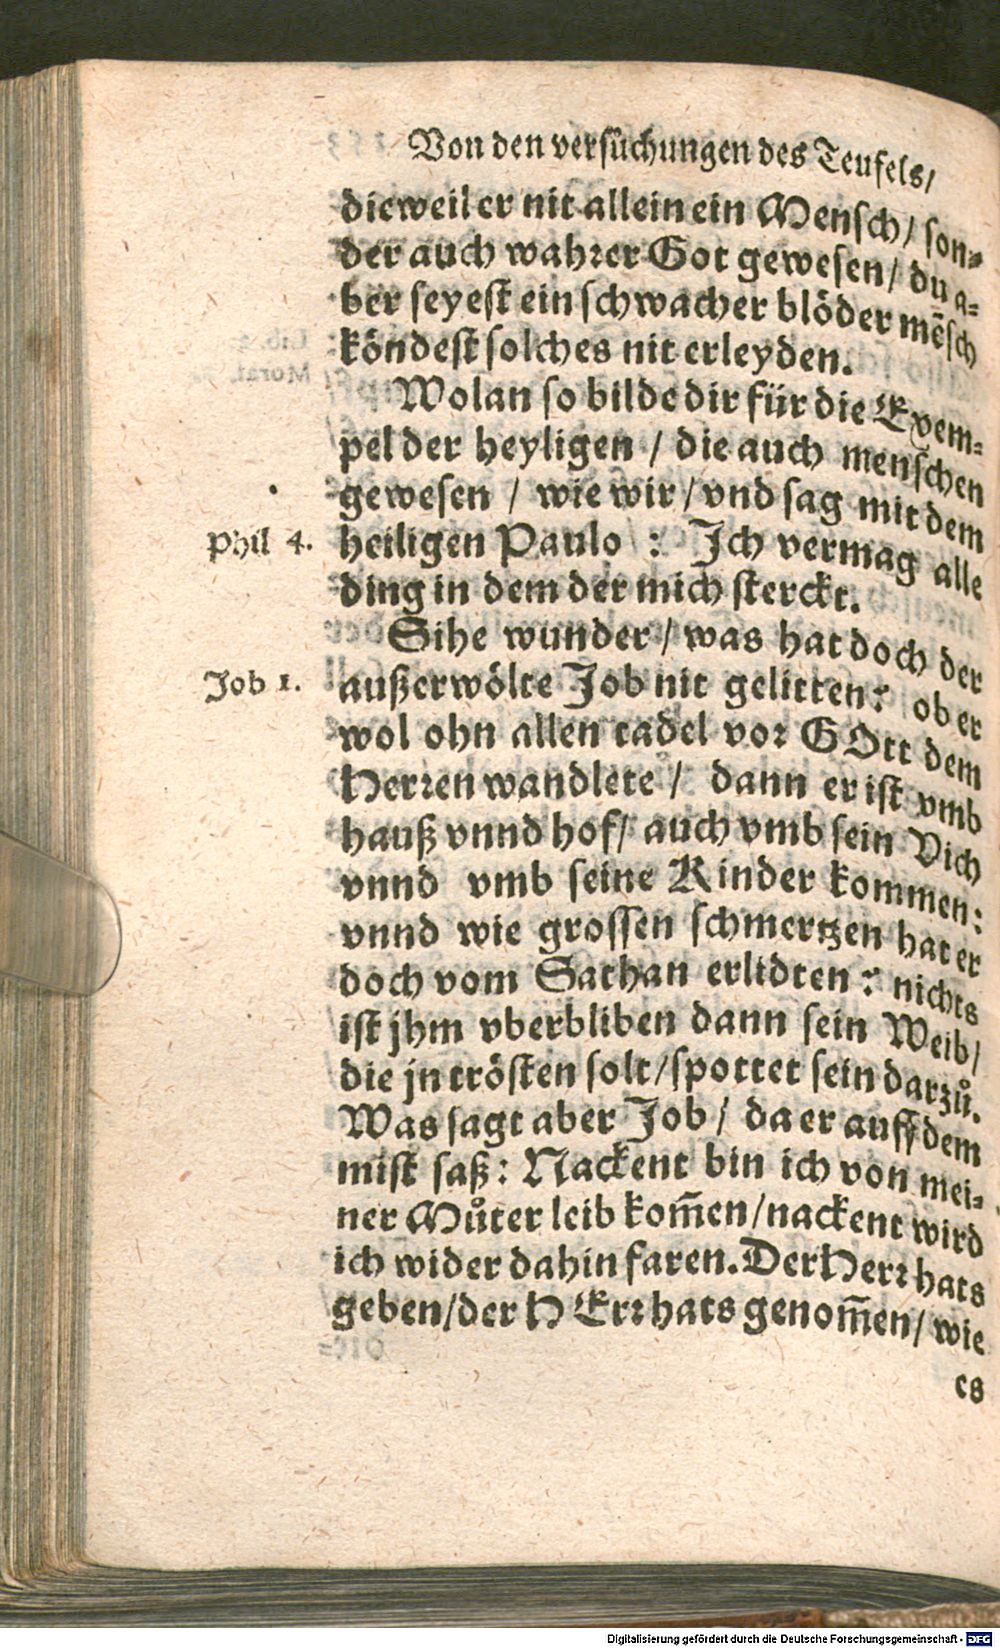 Von den versůchungen des Teufels/
dieweil er nit allein ein Mensch/ son⸗
der auch wahrer Got gewesen/ du a⸗
ber seyest ein schwacher blöder mēsch
köndest solches nit erleyden.
Wolan so bilde dir für die Exem⸗
pel der heyligen / die auch menschen
gewesen / wie wir/ vnd sag mit dem
Phil 4. heiligen Paulo : Ich vermag alle
ding in dem der mich sterckt.
Sihe wunder/ was hat doch der
Job 1. außerwölte Job nit gelitten? ob er
wol ohn allen tadel vor GOtt dem
Herren wandlete / dann er ist vmb
hauß vnnd hof/ auch vmb sein Vich
vnnd vmb seine Kinder kommen:
vnnd wie grossen schmertzen hat er
doch vom Sathan erlidten? nichts
ist jhm vberbliben dann sein Weib/
die jn trösten solt/ spottet sein darzů.
Was sagt aber Job/ da er auff dem
mist saß: Nackent bin ich von mei⸗
ner Můter leib kom̄en/ nackent wird
ich wider dahin faren. Der Herr hats
geben/ der HErr hats genom̄en/ wie
es
Digitalisierung gefördert durch die Deutsche Forschungsgemeinschaft - DFG